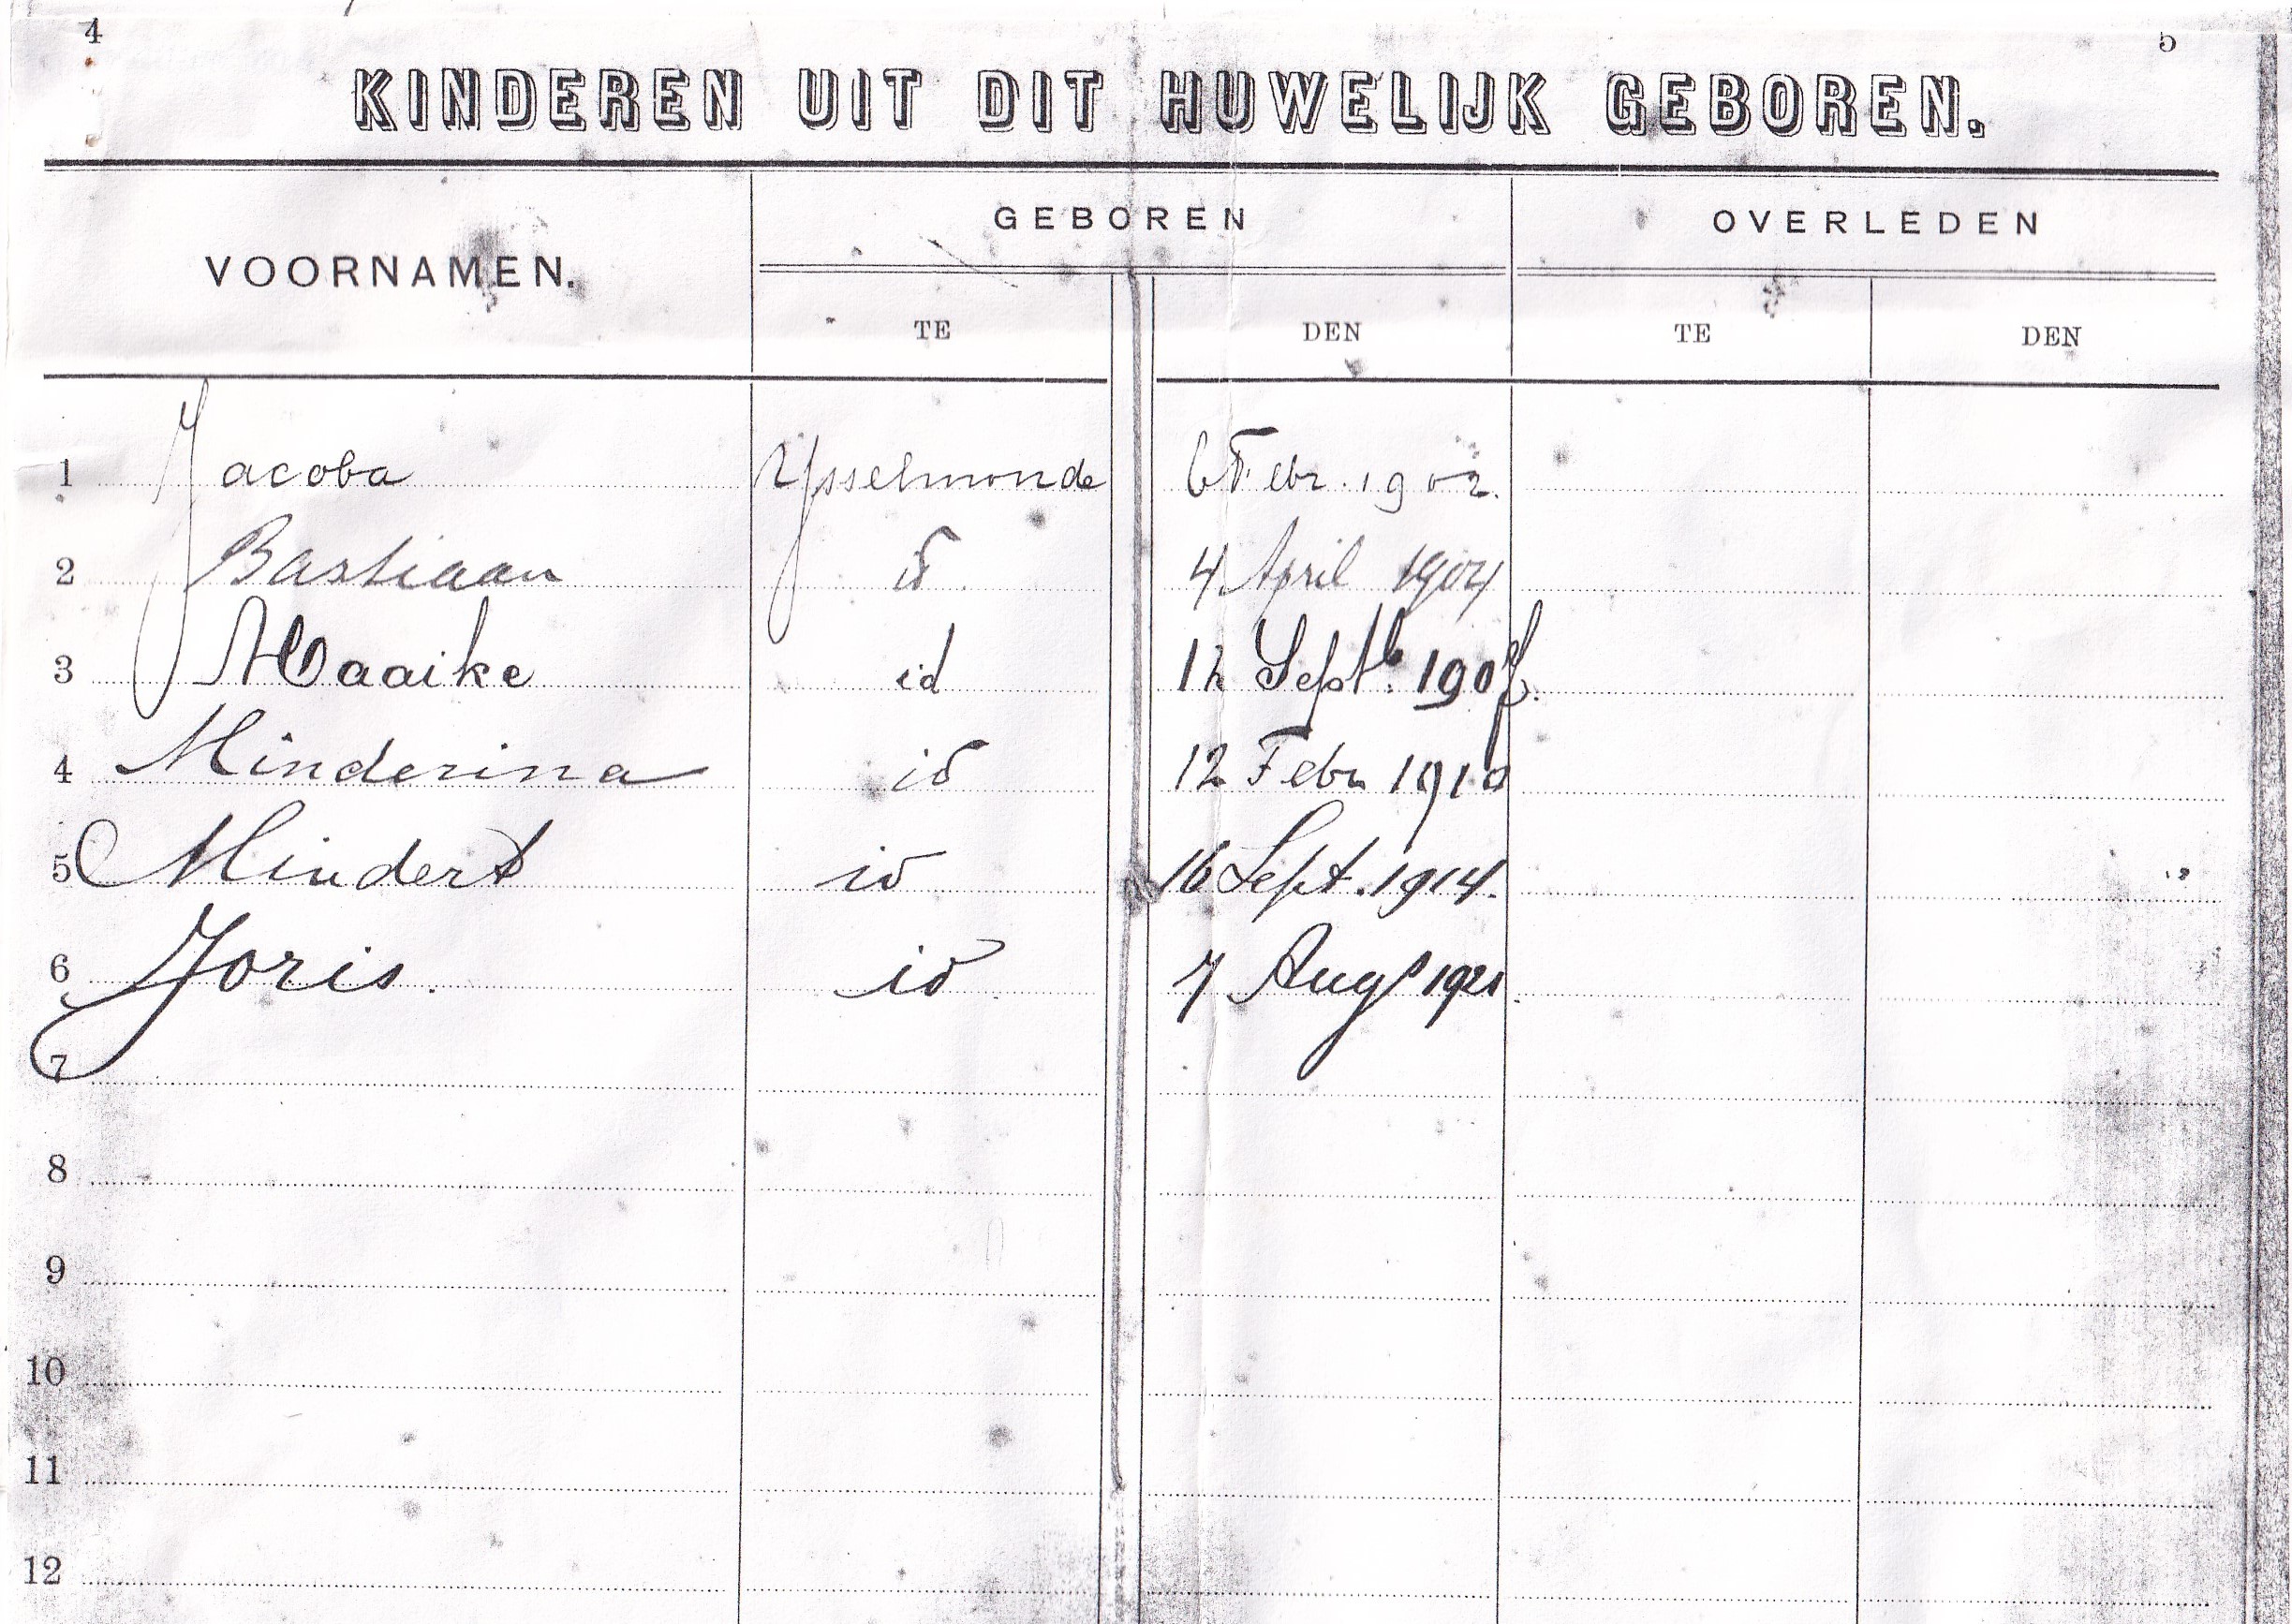 4 5
KINDEREN UIT DIT HUWELIJK GEBOREN.
VOORNAMEN. GEBOREN OVERLEDEN
TE DEN TE DEN
1 Jacoba Ysselmonde 6 Febr. 1902.
2 Bastiaan id 4 April 1904
3 Maaike id 12 Septb. 190
4 Minderina id 12 Febr 1910
5 Mindert id 16 Sept. 1914.
6 Joris. id 7 Augs 1921.
7
8
9
10
11
12